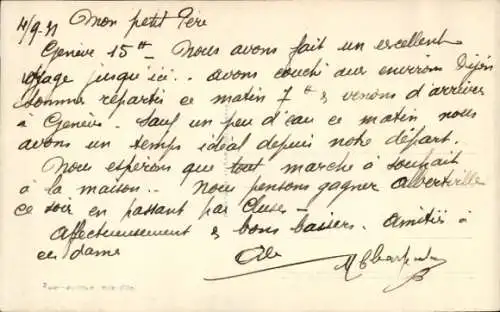 4/9-31 Mon petit Père
Genève 15h - Nous avons fait un excellent
voyage jusqu'ici.. avons couché aux environs Dijon
sommes repartis ce matin 7h & venons d'arriver
à Genève. Sauf un peu d'eau ce matin nous
avons un temps idéal depuis notre départ.
Nous espérons que tout marche à souhait
à la maison.. Nous pensons gagner Albertville
ce soir en passant par Cluses -
Affectueusement & bons baisers. Amitiés à
ces dames